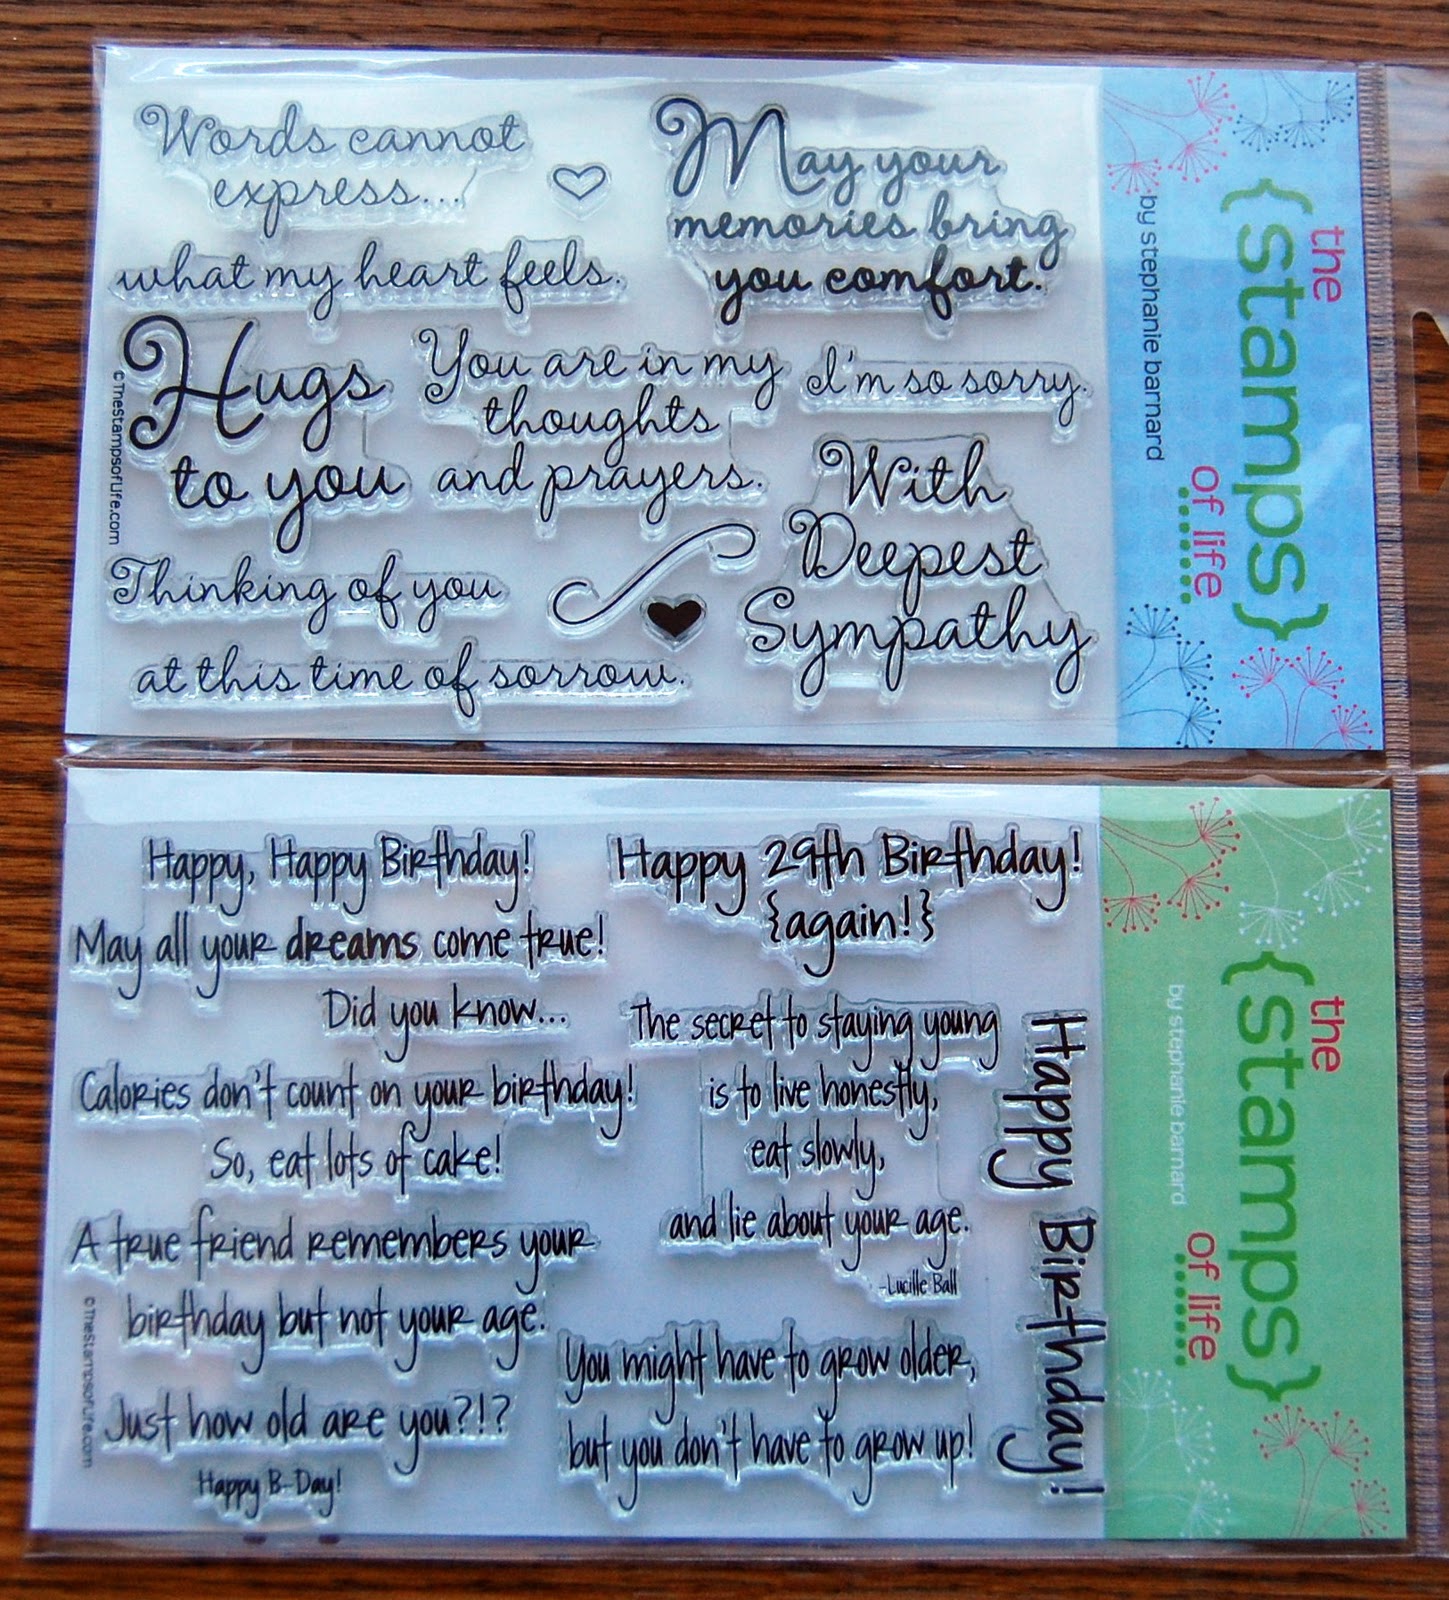 Words cannot
express...
what my heart feels.
May your
memories bring
you comfort.
Hugs
to you
You are in my
thoughts
and prayers.
I'm so sorry.
With
Deepest
Sympathy
Thinking of you
at this time of sorrow.
©TheStampsofLife.com
the
{stamps}
of life
by stephanie barnard
Happy, Happy Birthday!
May all your dreams come true!
Did you know...
Calories don't count on your birthday!
So, eat lots of cake!
A true friend remembers your
birthday but not your age.
Just how old are you?!?
Happy B-Day!
©TheStampsofLife.com
Happy 29th Birthday!
{again!}
The secret to staying young
is to live honestly,
eat slowly,
and lie about your age.
-Lucille Ball
You might have to grow older,
but you don't have to grow up!
Happy Birthday!
the
{stamps}
of life
by stephanie barnard